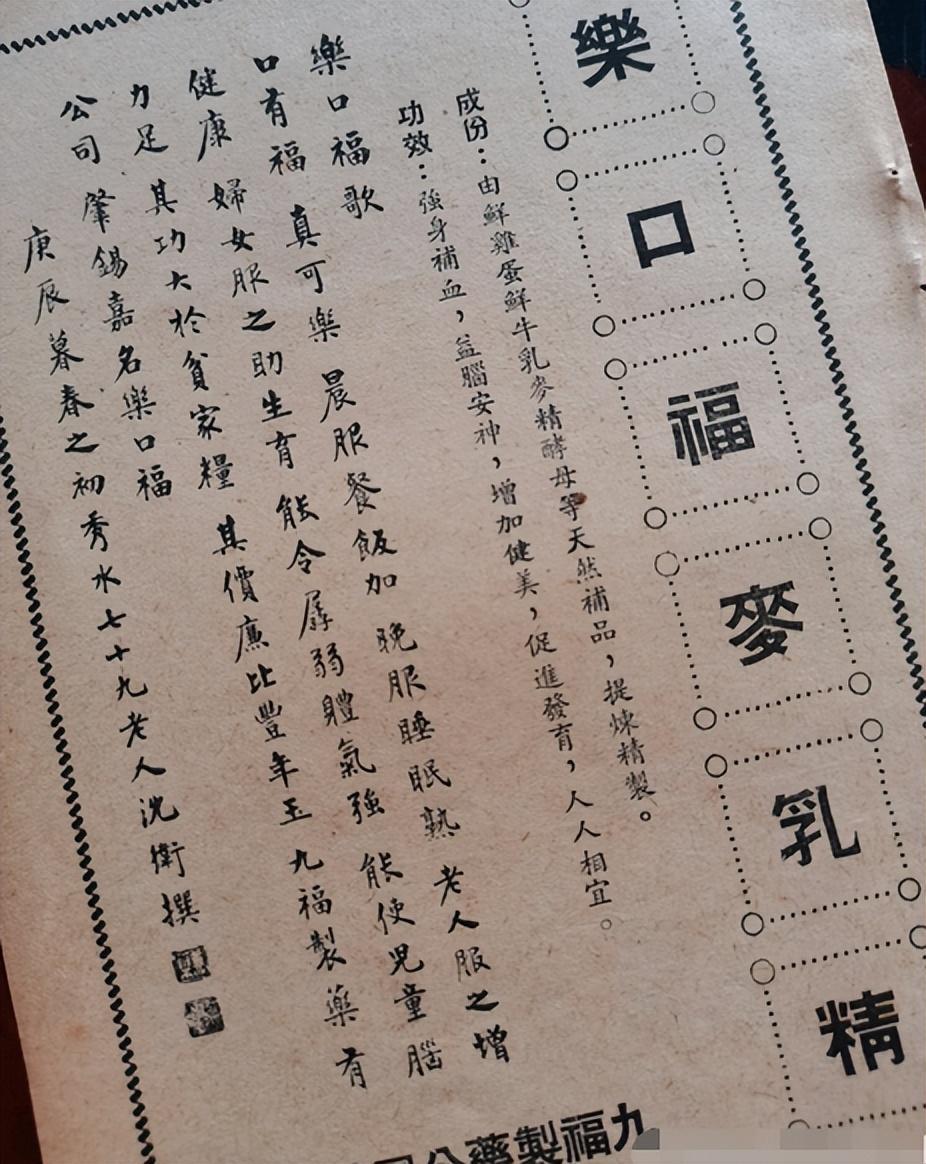 樂口福麥乳精
成份：由鮮雞蛋鮮牛乳麥精酵母等天然補品，提煉精製。
功效：強身補血，益腦安神，增加健美，促進發育，人人相宜。
樂口福歌
口有福 真可樂 晨服餐飯加 晚服睡眠熟 老人服之增
健康 婦女服之助生育 能令孱弱體氣強 能使兒童腦
力足 其功大於貧家糧 其價廉比豐年玉 九福製藥有
公司 肇錫嘉名樂口福
庚辰暮春之初秀水七十九老人沈衛撰
九福製藥公司